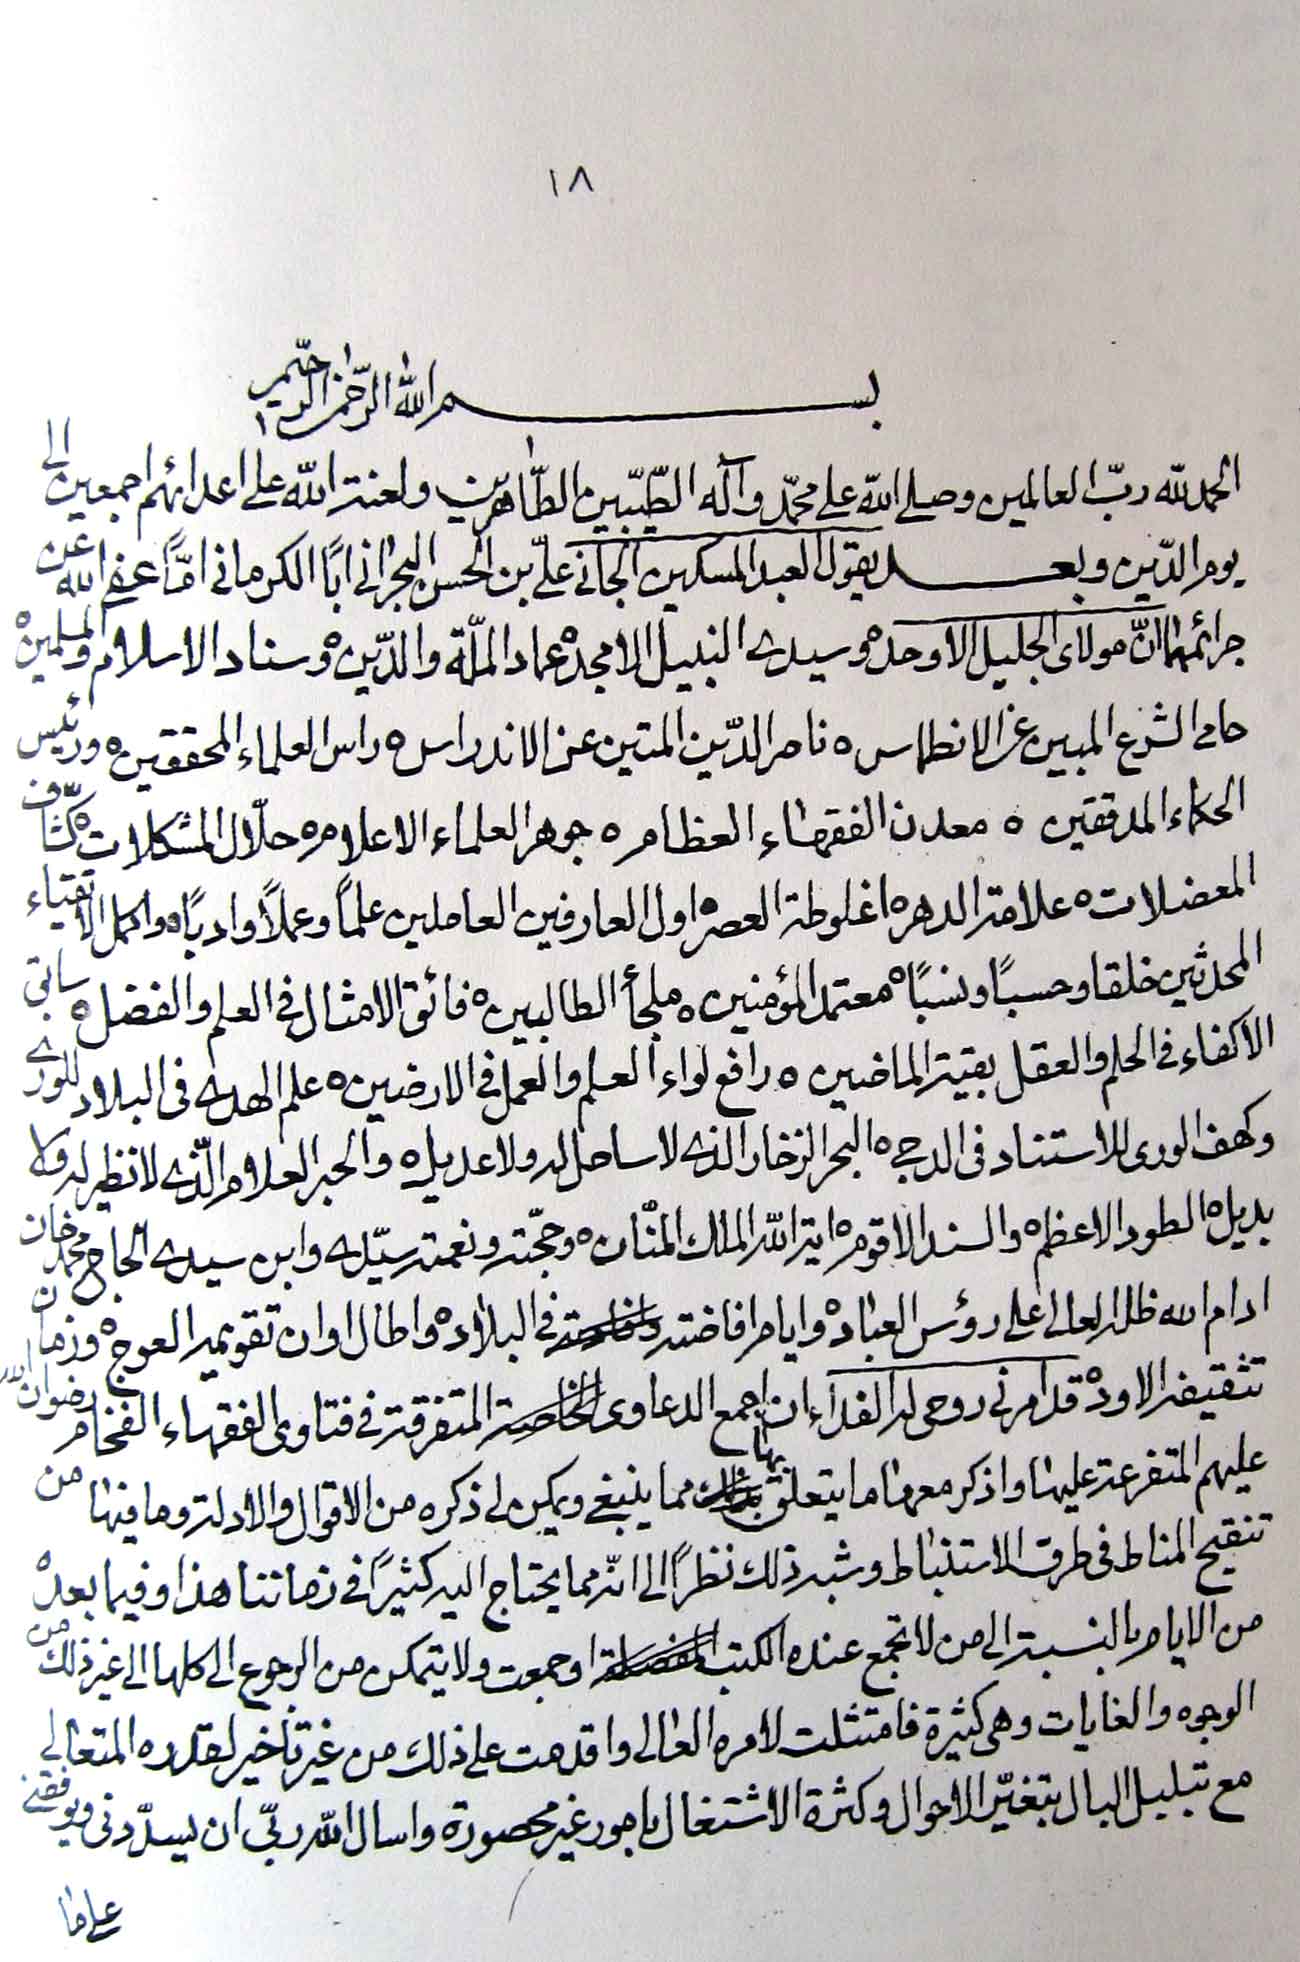 ١٨
بسم الله الرّحمن الرّحيم
الحمد لله ربّ العالمين وصلى الله على محمّد وآله الطّيّبين الطّاهرين ولعنة الله على اعدائهم اجمعين الى
يوم الدّين وبعد يقول العبد المسكين الجاني علىّ بن الحسن البحراني اباً الكرماني امّاً عفى الله عن
جرائمهما انّ مولاى الجليل الاوحده وسيدى النبيل الامجده عماد الملّة والدّين ه وسناد الاسلام والمسلمين ه
حامى الشرع المبين عن الانطماس ه ناصر الدّين المتين عن الاندراس ه راس العلماء المحققين ه ورئيس
الحكماء المدققين ه معدن الفقهاء العظام ه جوهر العلماء الاعلام ه حلّال المشكلات ه كشّاف
المعضلات ه علامة الدهر ه اغلوطة العصر ه اول العارفين العاملين علماً وعملاً وادباً ه واكمل الاتقياء
المحدثين خلقا وحسباً ونسباً ه معتمد المؤمنين ه ملجأ الطالبين ه فائق الامثال في العلم والفضل ه سابق
الاكفاء في الحلم والعقل بقية الماضين ه رافع لواء العلم والعمل في الارضين ه علم الهدى في البلاد للورى
وكهف الورى للاستناد في الدجى ه البحر الزخار الذى لا ساحل له ولا عديل ه والحبر العلام الّذى لا نظير له ولا
بديل ه الطود الاعظم ه والسند الاقوم ه اية الله الملك المنّان ه وحجّته ونعمته سيّدى وابن سيدى الحاج محمد خان
ادام الله ظله العالى على رؤس العباد ه وايام افاضته في البلاد ه واطال اوان تقويمه العوج ه وزمان
تثقيفه الاود ه قد امرني روحى له الفداء ان اجمع الدعاوى الخاصة المتفرقة في فتاوى الفقهاء الفخام رضوان الله
عليهم المتفرعة عليها واذكر معها ما يتعلق بها مما ينبغي ويمكن لى ذكره من الاقوال والادلة وما فيها من
تنقيح المناط في طرق الاستنباط وشبه ذلك نظراً الى انّه مما يحتاج اليه كثيراً في زماننا هذا وفيما بعده
من الايام بالنسبة الى من لا تجمع عنده الكتب المفصلة او جمعت ولا يتمكن من الرجوع الى كلها الى غير ذلك من
الوجوه والغايات وهى كثيرة فامتثلت لامره العالى واقدمت على ذلك من غير تأخير لقدره المتعالى
مع تبليل البال بتغيّر الاحوال وكثرة الاشتغال بامور غير محصورة واسال الله ربّى ان يسدّدنى ويوفقني
على ما